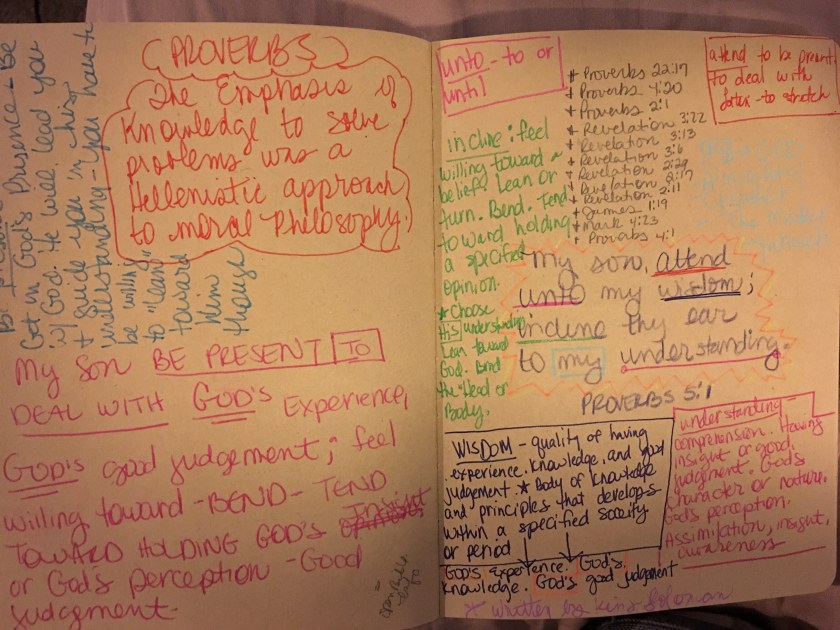 Get in God's Presence + Be
w/ God. He will lead you
+ guide you in his
understanding - you have to
be willing
to "lean"
toward
Him
though
(PROVERBS)
The Emphasis of
Knowledge to solve
problems was a
Hellenistic approach
to moral Philosophy.
My Son BE PRESENT TO
DEAL WITH GOD'S Experience,
GOD'S good judgement; feel
willing toward - BEND - TEND
TOWARD HOLDING GOD'S Insight
or God's perception - Good
judgement.
unto - to or
until
* Proverbs 22:17
* Proverbs 4:20
* Proverbs 2:1
* Revelation 3:22
* Revelation 3:13
* Revelation 3:6
* Revelation 2:29
* Revelation 2:17
* Revelation 2:11
* James 1:19
* Mark 4:23
* Proverbs 4:1
attend to be present
to deal with
to stretch
incline: feel
willing toward a
belief. Lean or
turn. Bend. Tend
toward holding
a specified
opinion.
* Choose
His understanding
Lean toward
God. Bend
the Head or
Body.
My son, attend
unto my wisdom;
incline thy ear
to my understanding.
PROVERBS 5:1
WISDOM - quality of having
experience. knowledge, and good
judgement. * Body of knowledge
and principles that develops
within a specified society
or period
GOD'S Experience. God's
knowledge. God's good judgement
understanding -
comprehension. Having
insight or good
judgment. God's
character or nature.
God's perception.
Assimilation, insight,
awareness
* Written by King Solomon